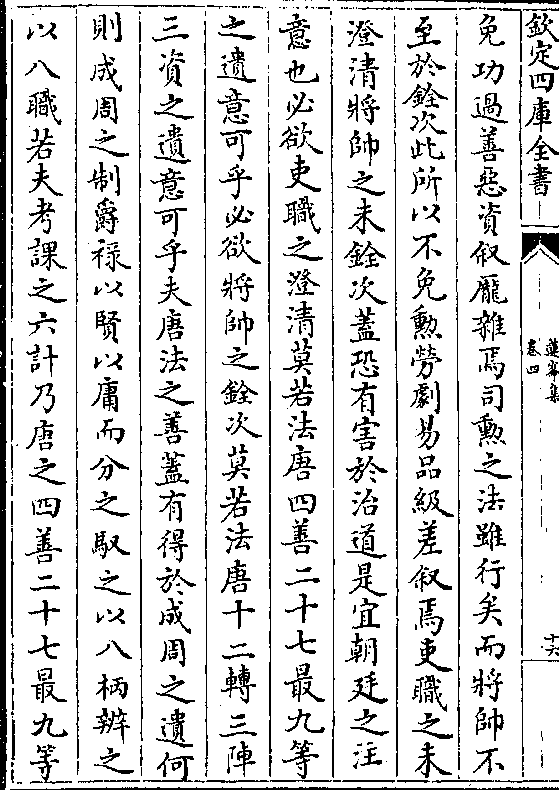 欽定四庫全書
蓮峯集
卷四
十六
免功過善惡資叙龎雜焉司勲之法雖行矣而將帥不
至於銓次此所以不免勲勞劇易品級差叙焉吏職之未
澄清將帥之未銓次蓋恐有害於治道是宜朝廷之注
意也必欲吏職之澄清莫若法唐四善二十七最九等
之遺意可乎必欲將帥之銓次莫若法唐十二轉三陣
三資之遺意可乎夫唐法之善蓋有得於成周之遺何
則成周之制爵禄以賢以庸而分之馭之以八柄辨之
以八職若夫考課之六計乃唐之四善二十七最九等